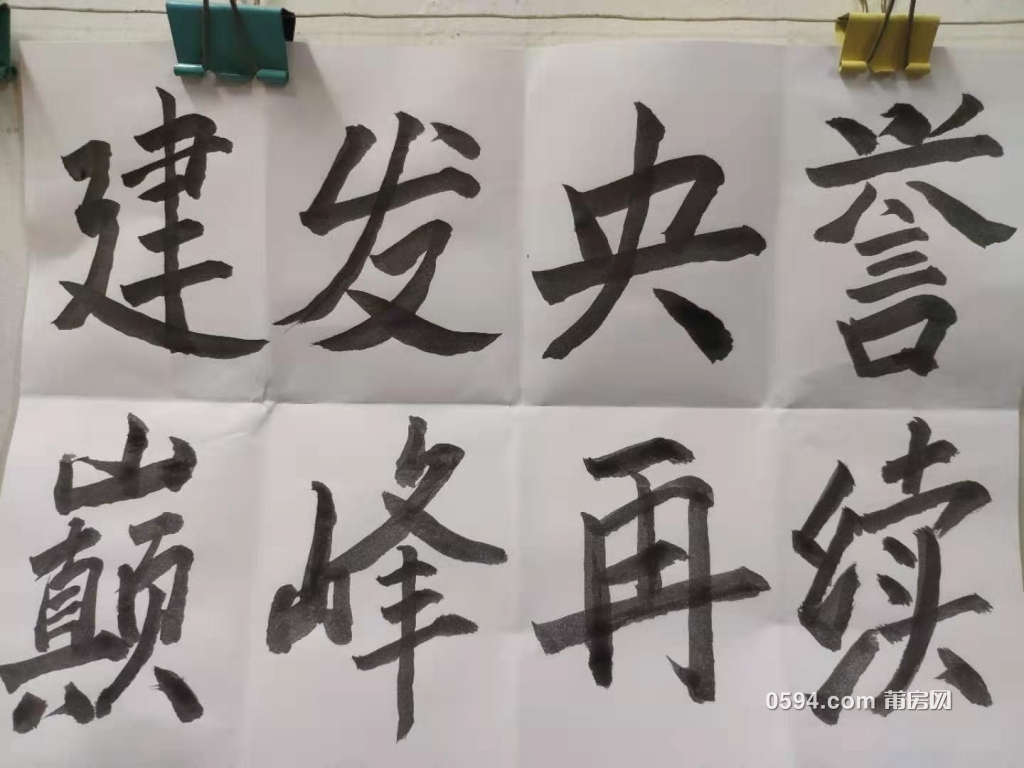 建发央誉
巅峰再续
0594.com 莆房网